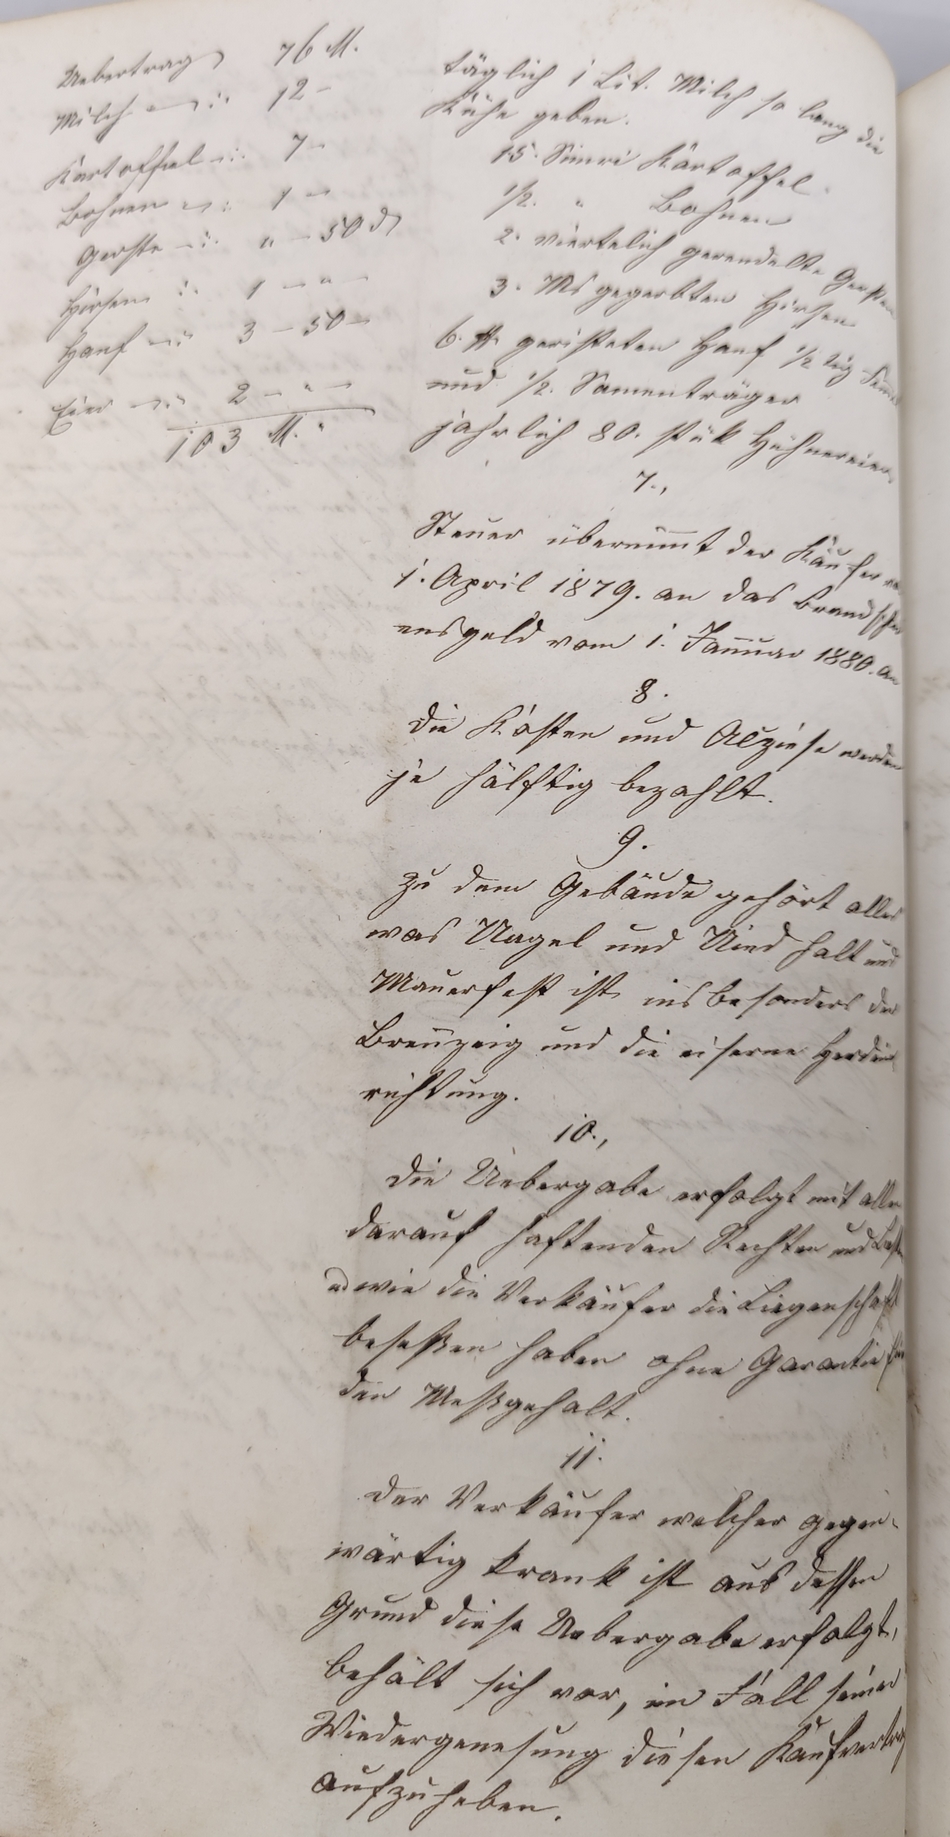 Uebertrag 76 M.
Milch -:- 12 -
Kartoffel -:- 7 -
Bohnen -:- 1 -
Gerste -:- " - 50 ₰
Hirsen -:- 1 - " -
Hanf -:- 3 - 50 -
Eier -:- 2 - " -
103 M. "
täglich 1 Lit. Milch so lang die
Kühe geben.
15. Simri Kartoffel.
1/2. " Bohnen
2. viertelich gerendelte Gersten
3. Ms gegerbten Hirsen
6. ℔ geristeten Hanf 1/2
und 1/2. Samenträger
jährlich 80. stük Hühnereier
7.,
Steuer übernimmt der Käufer
1. April 1879. an das Brandscha
ensgeld vom 1. Januar 1880. an
8.
Die Kosten und Akziese werden
je hälftig bezahlt.
9.
Zu dem Gebäude gehört alles
was Nagel und Nied halt und
Mauerfest ist insbesonders der
Breñzeig und die eiserne Herdein
richtung.
10.,
Die Uebergabe erfolgt mit allen
darauf haftenden Rechten und Lasten
wie die Verkäufer die Liegenschaft
beseßen haben ohne Garantie für
den Meßgehalt.
11.
Der Verkäufer welcher gegen-
wärtig krank ist aus dessen
Grund diese Uebergabe erfolgt,
behält sich vor, im Fall seiner
Wiedergenesung diesen Kaufvertrag
aufzuheben.